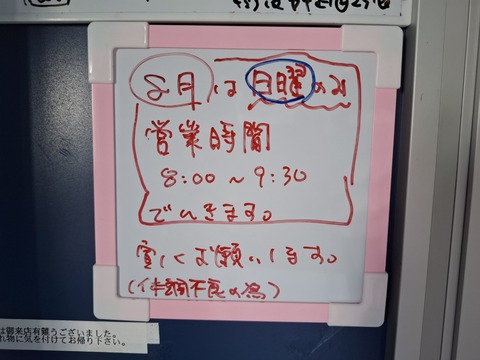 8月は日曜のみ
営業時間
8:00～9:30
でいきます。
宜しくお願いします。
(体調不良の為)
は御来店有難うございました。
れ物に気を付けてお帰り下さい。